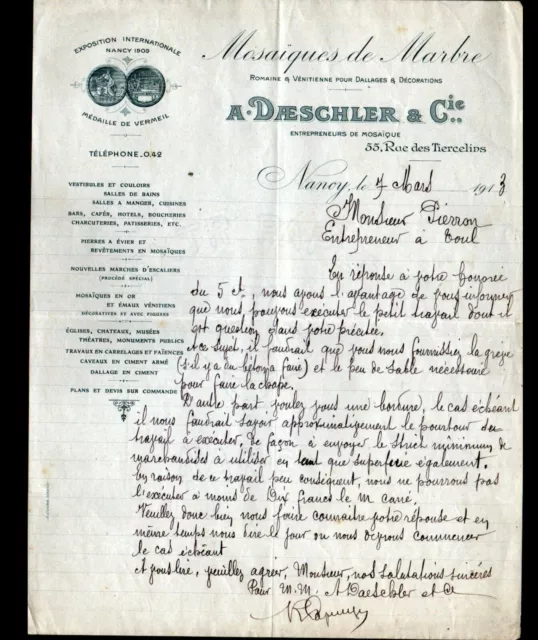 EXPOSITION INTERNATIONALE
NANCY 1909
MÉDAILLE DE VERMEIL
TÉLÉPHONE_0.42
Mosaïques de Marbre
ROMAINE & VÉNITIENNE POUR DALLAGES & DÉCORATIONS
A. DÆSCHLER & Cie..
ENTREPRENEURS DE MOSAÏQUE
55, Rue des Tiercelins
Nancy, le 7 Mars 1913
VESTIBULES ET COULOIRS
SALLES DE BAINS
SALLES A MANGER, CUISINES
BARS, CAFÉS, HOTELS, BOUCHERIES
CHARCUTERIES, PATISSERIES, ETC.
PIERRES A ÉVIER ET
REVÊTEMENTS EN MOSAÏQUES
NOUVELLES MARCHES D'ESCALIERS
(PROCÉDÉ SPÉCIAL)
MOSAÏQUES EN OR
ET ÉMAUX VÉNITIENS
DÉCORATIVES ET AVEC FIGURES
ÉGLISES, CHATEAUX, MUSÉES
THÉATRES, MONUMENTS PUBLICS
TRAVAUX EN CARRELAGES ET FAÏENCES
CAVEAUX EN CIMENT ARMÉ
DALLAGE EN CIMENT
PLANS ET DEVIS SUR COMMANDE
Monsieur Pierron
Entrepreneur à Toul
En réponse à votre honorée
du 5 ct, nous avons l'avantage de vous informer
que nous pouvons exécuter le petit travail dont il
est question dans votre précitée.
A ce sujet, il faudrait que vous nous fournissiez la grève
(s'il y a du béton à faire) et le peu de sable nécessaire
pour faire la chape.
D'autre part voulez vous une bordure, le cas échéant
il nous faudrait savoir approximativement le pourtour du
travail à exécuter, de façon à envoyer le strict minimum de
marchandises à utiliser en tant que superficie également.
En raison de ce travail peu conséquent, nous ne pouvons pas
l'exécuter à moins de Dix francs le m carré.
Veuillez donc bien nous faire connaître votre réponse et en
même temps nous dire le jour où nous devrons commencer
le cas échéant
A vous lire, veuillez agréer, Monsieur, nos salutations sincères
Pour M.M. A Daeschler et Cie